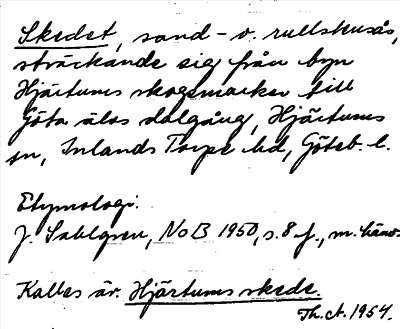 Skedet, sand- o. rullstensås,
sträckande sig från byn
Hjärtums skogsmarker till
Göta älvs dalgång, Hjärtums
sn, Inlands Torpe hd, Göteb. l.
Etymologi:
J. Sahlgren, NoB 1950, s. 8 f., m. hänv.
Kallas äv. Hjärtums skede.
Th. A. 1954.